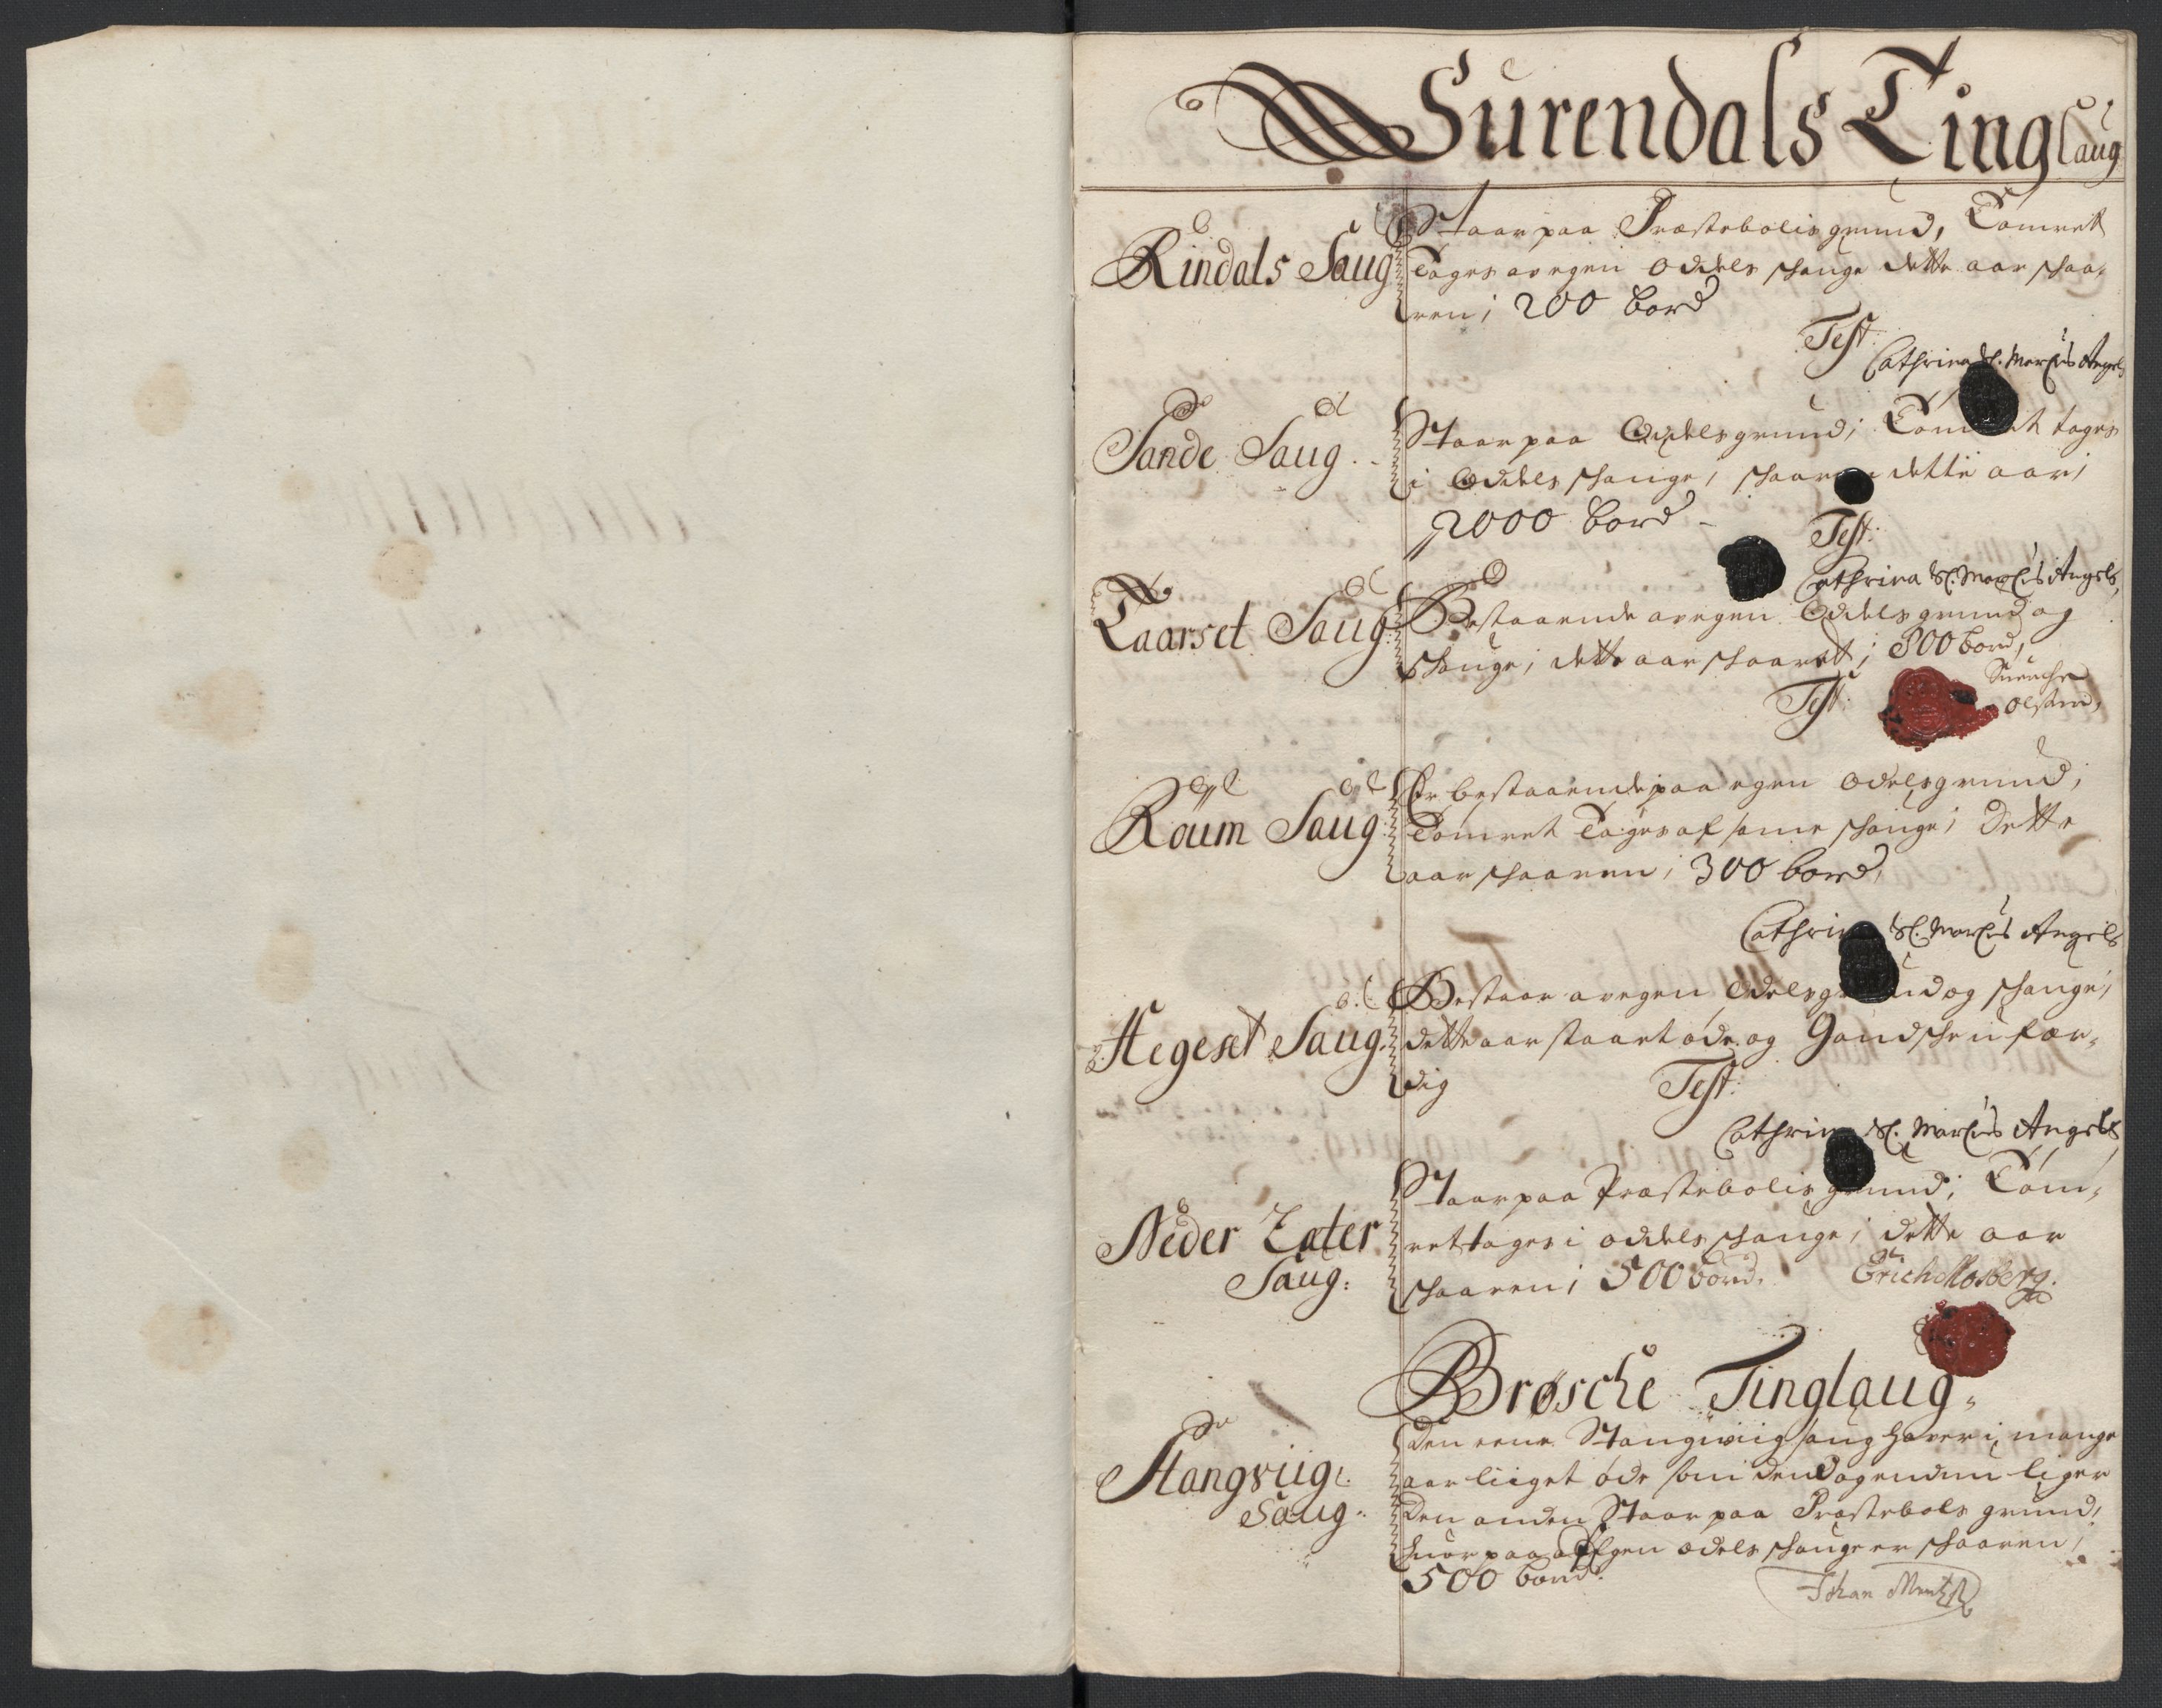 Surendals Tinglaug
Rindals Saug
Staar paa Præstebolis grund, Tømret
Tages av egen Oddels schauge dette aar schaa-
ren; 200 bord
Test:
Cathrina Sl: Marcus Angels
Sande Saug
Staar paa Oddels grund; Tømret tages
i Oddels schauge, schaaren dette aar;
2000 bord
Test:
Cathrina Sl: Marcus Angels
Taarset Saug
Bestaaende av egen Oddels grund og
schauge; dette aar schaaret; 800 bord,
Test:
Røum Saug
Er bestaaende paa egen Odels grund;
Tømret Tages af same schauge; dette
aar schaaren; 300 bord,
Cathrina Sl: Marcus Angels
Hegeset Saug
Bestaar av egen Odels grund og schauge,
dette aar staaet øde, og gandsche u fær-
dig
Test:
Cathrina Sl: Marcus Angels
Neder Zæter
Saug:
Staar paa Præstebolis grund; Tøm-
ret tages i oddels schauge; dette aar
schaaren; 500 bord.
Erich Mosberg.
Brøsche Tinglaug
Stangviig
Saug:
Den eene Stangwiig saug haver i mange
aar liiget øde som den Dagen nu liger
Den anden Staar paa Præstebols grund,
huor paa af Egen odels schauge er schaaren,
500 bord.
Johan